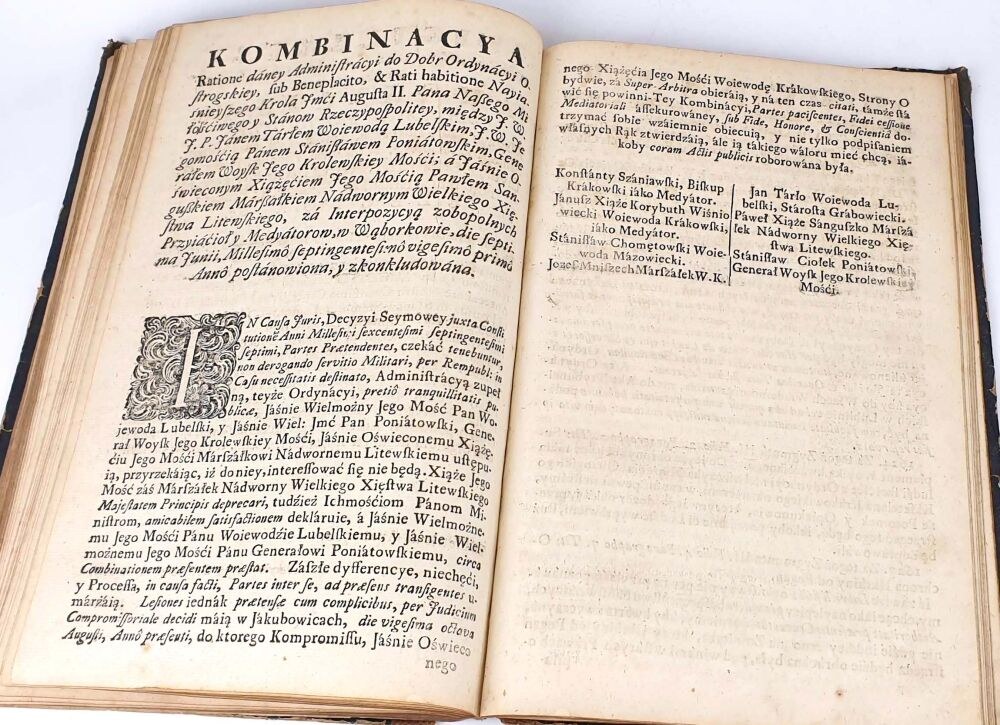 KOMBINACYA
Ratione dáney Adminiſtrácyi do Dobr Ordynácyi O-
ſtrogskiey, ſub Beneplacito, & Rati habitione Nayia-
śnieyszego Krola Jmći Auguſta II. Pana Naſzego Mi
łościwego y Stánow Rzeczypoſpolitey, między J. W.
J. P. Janem Tarłem Woiewodą Lubelſkim, J. W. Je
gomością Pánem Staniſłáwem Poniátowſkim, Gene
rałem Woyſk Jego Krolewſkiey Mośći; á Jáśnie O-
świeconym Xiążęćiem Jego Mośćią Pawłem San-
guſzkiem Márſzałkiem Nádwornym Wielkiego Xię-
ſtwa Litewſkiego, zá Interpozycyą zobopolnych
Przyiáćioł y Medyátorow, w Wąborkowie, die ſepti-
ma Junii, Milleſimô ſeptingenteſimô vigeſimô primô
Annô poſtánowiona, y zkonkludowána.
IN Cauſa Juris, Decyzyi Seymowey juxta Conſti
tutionẽ Anni Milleſimi ſexcenteſimi ſeptingenteſimi
ſeptimi, Partes Prætendentes, czekáć tenebuntur,
non derogando ſervitio Militari, per Rempubl: in
Caſu neceſſitatis deſtinato, Adminiſtrácyą zupeł
ną, teyże Ordynácyi, pretiô tranquillitatis pu-
blicæ, Jáśnie Wielmożny Jego Mość Pan Wo-
jewoda Lubelſki, y Jáśnie Wiel: Jmć Pan Poniátowſki, Gene-
rał Woyſk Jego Krolewſkiey Mośći, Jáśnie Oświeconemu Xiążę-
ćiu Jego Mośći Márſzałkowi Nádwornemu Litewſkiemu uſtępu-
ią, przyrzekáiąc, iż do niey, intereſſować ſię nie będą. Xiąże Jego
Mość záś Márſzałek Nádworny Wielkiego Xięſtwa Litewſkiego
Majeſtatem Principis deprecari, tudźież Ichmośćiom Pánom Mi-
niſtrom, amicabilem ſatisfactionem dekláruie, á Jáśnie Wielmożne-
mu Jego Mośći Pánu Woiewodźie Lubelſkiemu, y Jáśnie Wiel-
możnemu Jego Mośći Pánu Generałowi Poniátowſkiemu, circa
Combinationem præſentem præſtat. Záſzłe dyfferencye, niechęći,
y Proceſſa, in cauſa facti, Partes inter ſe, ad præſens tranſigentes u-
marzáią. Leſiones iednák prætenſæ cum complicibus, per Judicium
Compromiſſoriale decidi máią w Jakubowicach, die vigeſima octava
Auguſti, Annô præſenti, do ktorego Kompromiſſu, Jáśnie Oświeco
nego
nego Xiążęćia Jego Mośći Woiewodę Krákowſkiego, Strony O
bydwie, zá Super-Arbitra obieráią, y ná ten czas citati, támże ſtá
wić ſię powinni. Tey Kombinácyi, Partes paciſcentes, Fidei ceſſione
Mediatoriali aſſekurowáney, ſub Fide, Honore, & Conſcientiâ do-
trzymáć ſobie wzáiemnie obiecuią, y nie tylko podpiſaniem
włáſnych Rąk ztwierdzáią, ale ią tákiego waloru mieć chcą, iá-
koby coram Actis publicis roborowana była.
Konſtánty Szániawſki, Biſkup
Krákowſki iáko Medyátor.
Jánuſz Xiąże Korybuth Wiśnio
wiecki Woiewoda Krákowſki,
iáko Medyátor.
Stániſłáw Chomętowſki Woie-
woda Mázowiecki.
Jozef Mniſzech Márſzałek W. K.
Jan Tárło Woiewoda Lu-
belſki, Stároſta Grabowiecki.
Páweł Xiąże Sánguſzko Márſzá
łek Nádworny Wielkiego Xię-
ſtwa Litewſkiego.
Stániſłáw Ciołek Poniátowſki
Generał Woyſk Jego Krolewſkiey
Mośći.